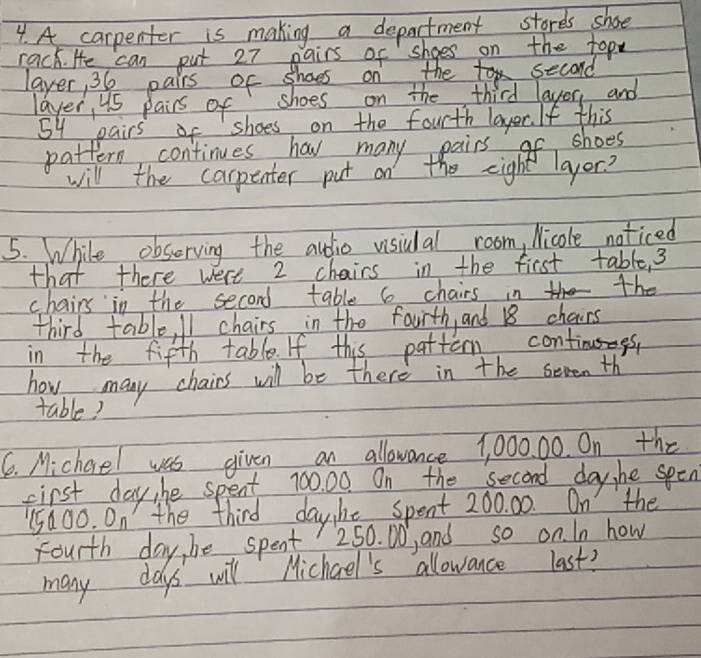 4. A carpenter is making a department stored's shoe
rack. He can put 27 pairs of shoes on the top
layer, 36 pairs of shoes on the second
layer, 45 pairs of shoes on the third layer, and
54 pairs of shoes on the fourth layer. If this
pattern continues how many pairs of shoes
will the carpenter put on the eight layer?
5. While observing the audio visiulal room, Nicole noticed
that there were 2 chairs in the first table, 3
chairs in the second table 6 chairs in the
third table, 11 chairs in the fourth, and 18 chairs
in the fifth table. If this pattern continues,
how many chairs will be there in the seventh
table?
6. Michael was given an allowance 1,000.00. On the
first day, he spent 100.00 On the second day, he spen
150.00. On the third day, he spent 200.00. On the
fourth day, he spent 250.00, and so on. In how
many days will Michael's allowance last?